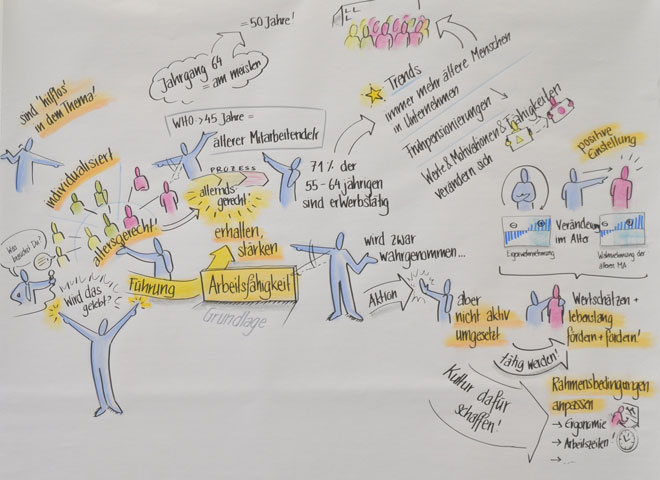 = 50 Jahre!
Jahrgang 64
= am meisten
sind 'hilflos'
in dem Thema!
WHO > 45 Jahre =
älterer Mitarbeitende/r
Trends
immer mehr ältere Menschen
in Unternehmen
Frühpensionierungen
Werte & Motivationen & Fähigkeiten
verändern sich
individualisiert
PROZESS
alterndsgerecht!
71% der
55-64 jährigen
sind erwerbstätig
altersgerecht!
erhalten,
stärken
Was
brauchst Du?
wird das
gelebt?
Führung
Arbeitsfähigkeit
Grundlage
wird zwar
wahrgenommen...
Aktion
aber
nicht aktiv
umgesetzt
positive
Einstellung
Veränderung
im Alter
Eigenwahrnehmung
Wahrnehmung der
älteren MA
Wertschätzen +
lebenslang
fördern + fordern!
tätig werden!
Kultur dafür
schaffen!
Rahmenbedingungen
anpassen
→ Ergonomie
→ Arbeitszeiten!
→ ...